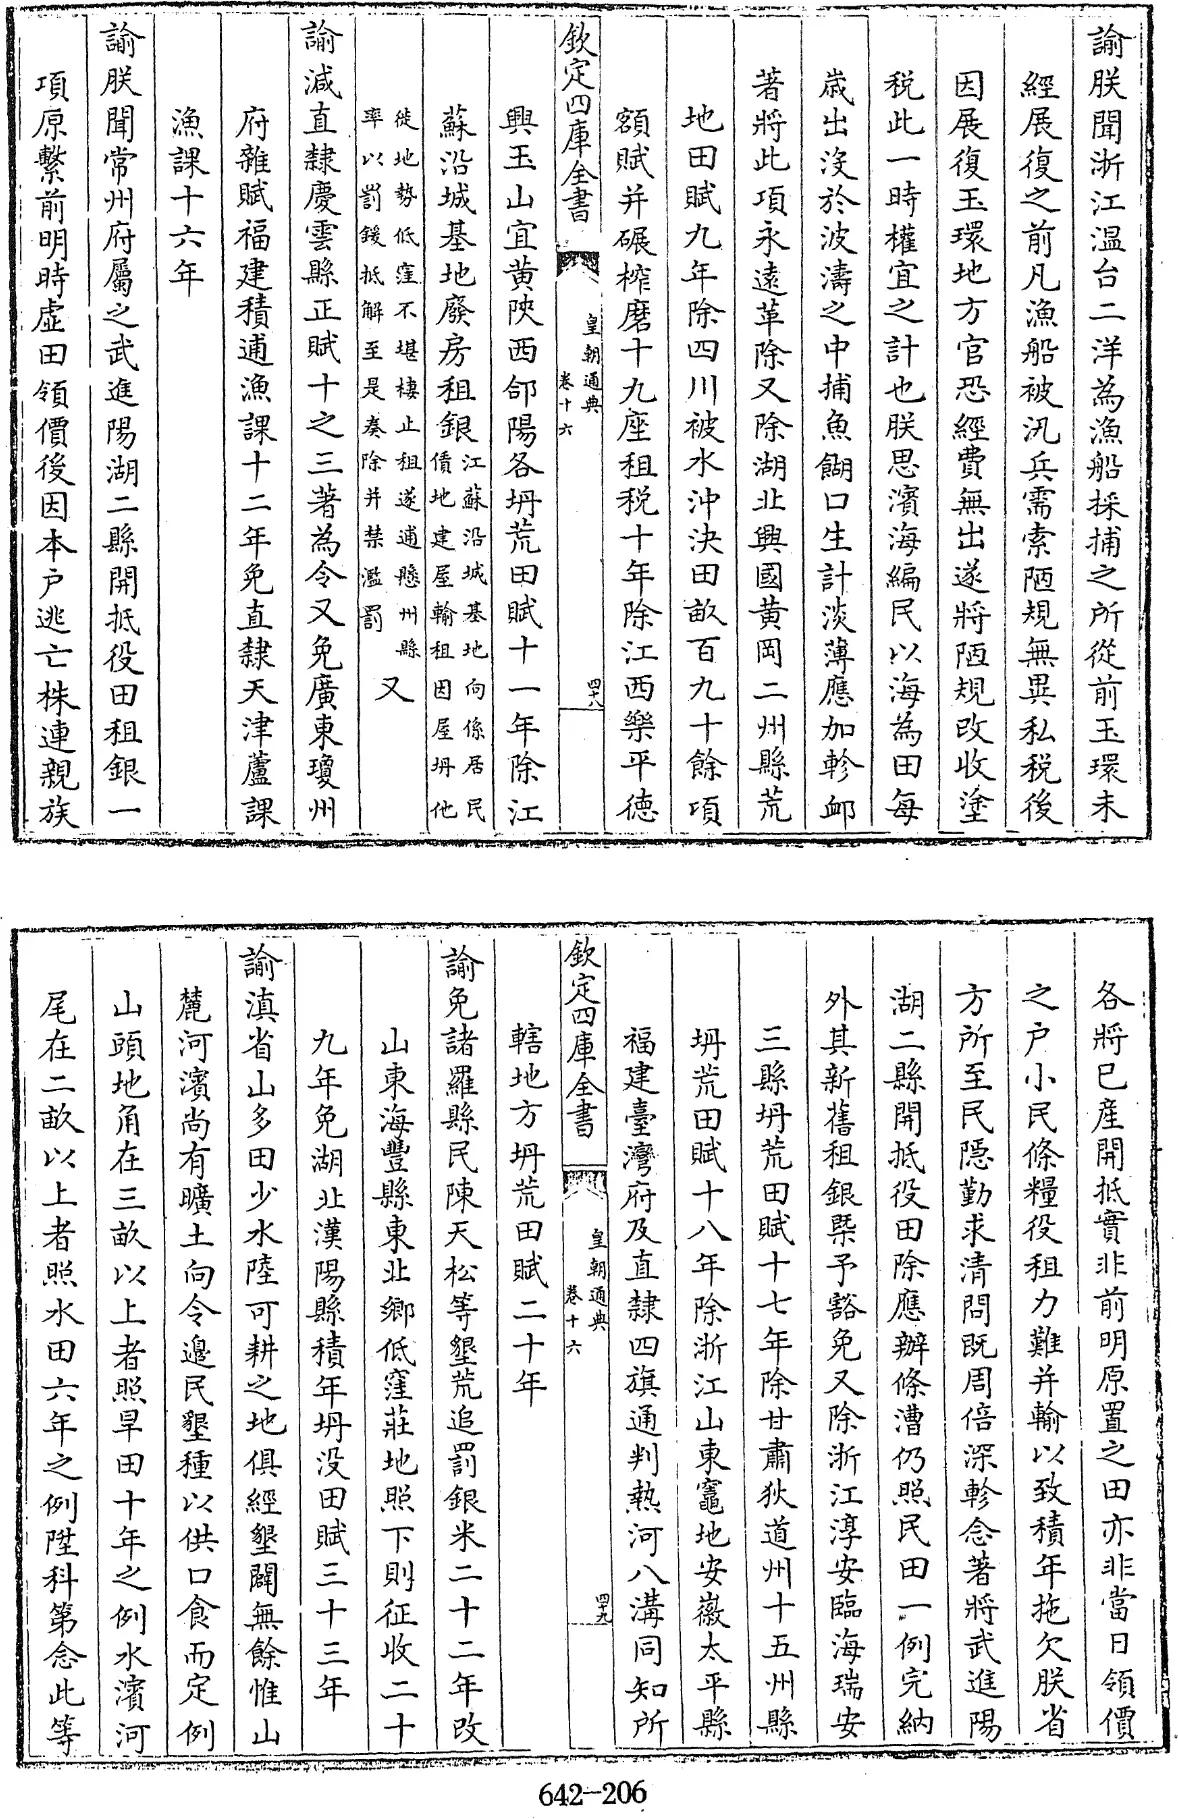 諭朕聞浙江溫台二洋為漁船採捕之所從前玉環未
經展復之前凡漁船被汛兵需索陋規無異私稅後
因展復玉環地方官恐經費無出遂將陋規改收塗
稅此一時權宜之計也朕思濱海編民以海為田每
歳出沒於波濤之中捕魚餬口生計淡薄應加軫卹
著將此項永遠革除又除湖北興國黄岡二州縣荒
地田賦九年除四川被水沖決田畝百九十餘項
額賦并碾榨磨十九座租稅十年除江西樂平德
欽定四庫全書
皇朝通典
卷十六
四十八
興玉山宜黄陝西郃陽各坍荒田賦十一年除江
蘇沿城基地廢房租銀江蘇沿城基地向係居民
債地建屋輸租因屋坍他
徙地勢低窪不堪棲止租遂逋懸州縣
率以罰鍰抵解至是奏除并禁濫罰
又
諭減直隸慶雲縣正賦十之三著為令又免廣東瓊州
府雜賦福建積逋漁課十二年免直隸天津蘆課
漁課十六年
諭朕聞常州府屬之武進陽湖二縣開抵役田租銀一
項原繫前明時虛田領價後因本户逃亡株連親族
各將已産開抵實非前明原置之田亦非當日領價
之户小民條糧役租力難并輸以致積年拖欠朕省
方所至民隱勤求清問既周倍深軫念著將武進陽
湖二縣開抵役田除應辦條漕仍照民田一例完納
外其新舊租銀槩予豁免又除浙江淳安臨海瑞安
三縣坍荒田賦十七年除甘肅狄道州十五州縣
坍荒田賦十八年除浙江山東竈地安徽太平縣
福建臺灣府及直隸四旗通判熱河八溝同知所
欽定四庫全書
皇朝通典
卷十六
四十九
轄地方坍荒田賦二十年
諭免諸羅縣民陳天松等墾荒追罰銀米二十二年改
山東海豐縣東北鄉低窪莊地照下則征收二十
九年免湖北漢陽縣積年坍没田賦三十三年
諭滇省山多田少水陸可耕之地俱經墾闢無餘惟山
麓河濱尚有曠土向令邊民墾種以供口食而定例
山頭地角在三畝以上者照旱田十年之例水濱河
尾在二畝以上者照水田六年之例陞科第念此等
642-206